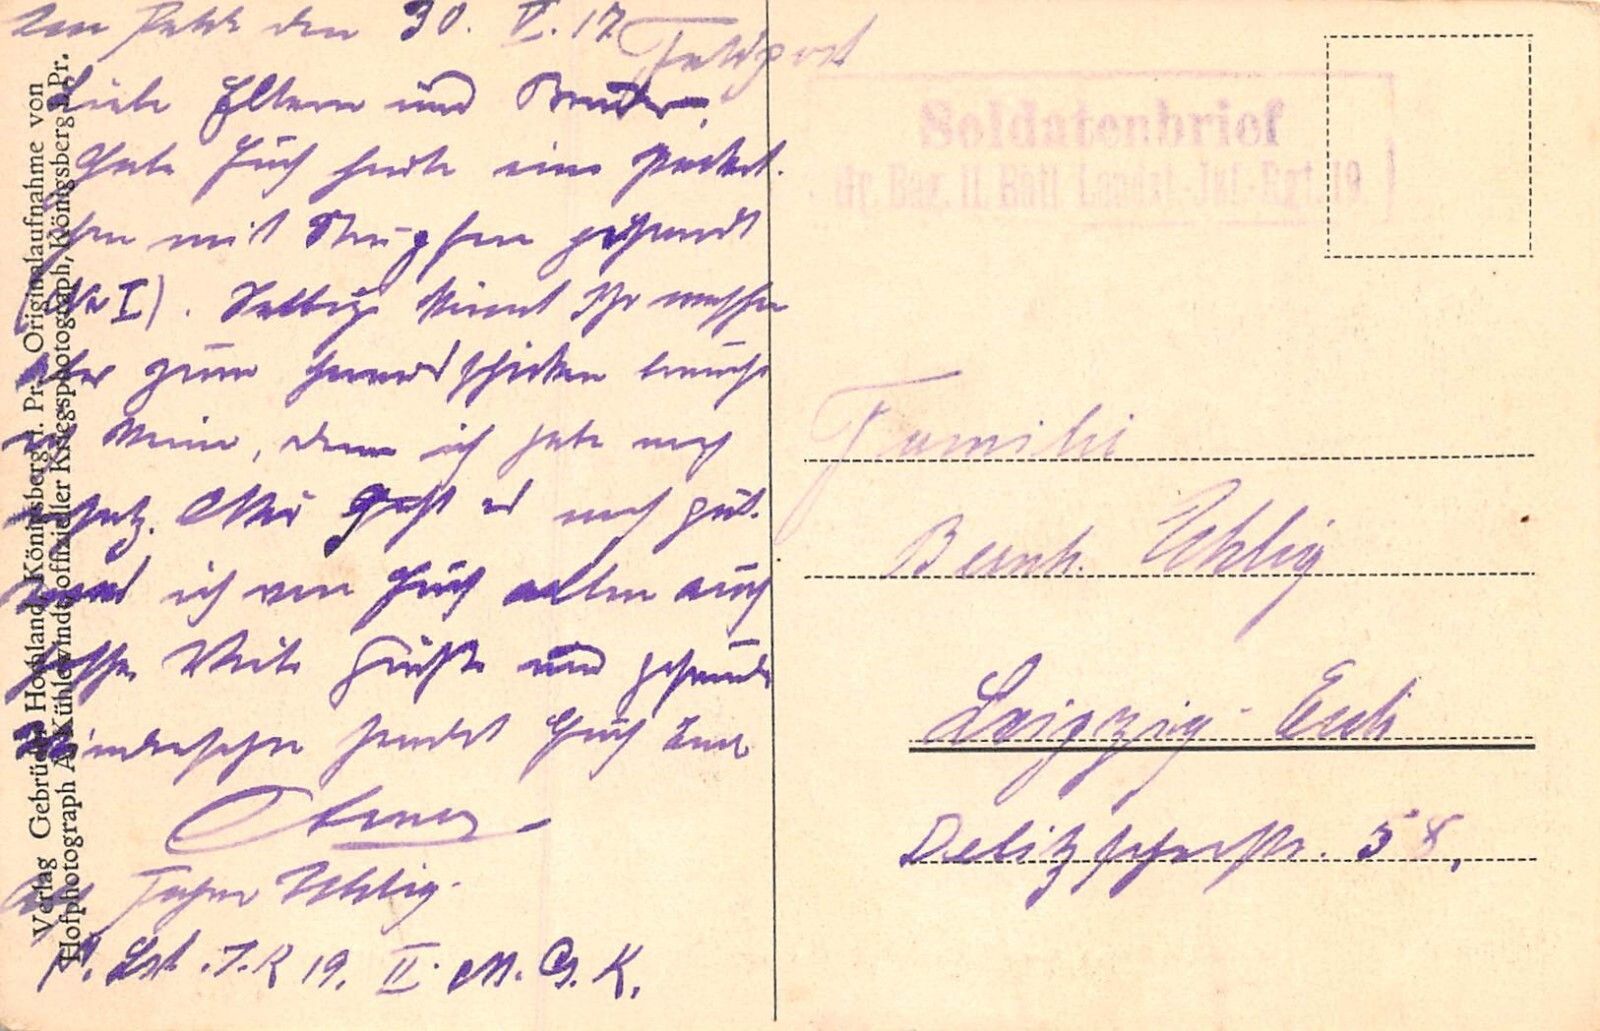 Im Felde den 30. V. 17.
Feldpost
Liebe Eltern und Bruder,
Habe Euch heute ein Packet-
chen mit Strümpfen gesandt
(No I). Selbige könnt Ihr waschen
aber zum schicken braucht
Ihr keine, denn ich habe noch
Mir geht es noch gut.
was ich von Euch allen auch
hoffe. Viele Grüße und gesundes
Wiedersehen sendet Euch Euer
Abs. Uhlig.
Lst. I.R 19. II. M. G. K.
Verlag Gebrüder Hohland, Königsberg i. Pr. Originalaufnahme von
Hofphotograph A. Kühlewindt, offizieller Kriegsphotograph, Königsberg i. Pr.
Soldatenbrief
Gr. Bag. II. Batl. Landst. Inf.-Rgt. 19.
Familie
Bernh. Uhlig
Leipzig-Eutr.
Delitzscherstr. 58.